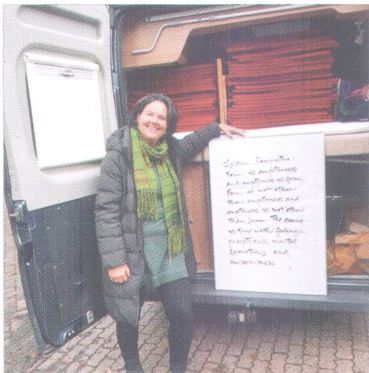 Listen Sariputra:
form is emptiness
and emptiness is form
form is not other
than emptiness and
emptiness is not other
than form The same
is true with feelings,
perceptions, mental
formations and
consciousness